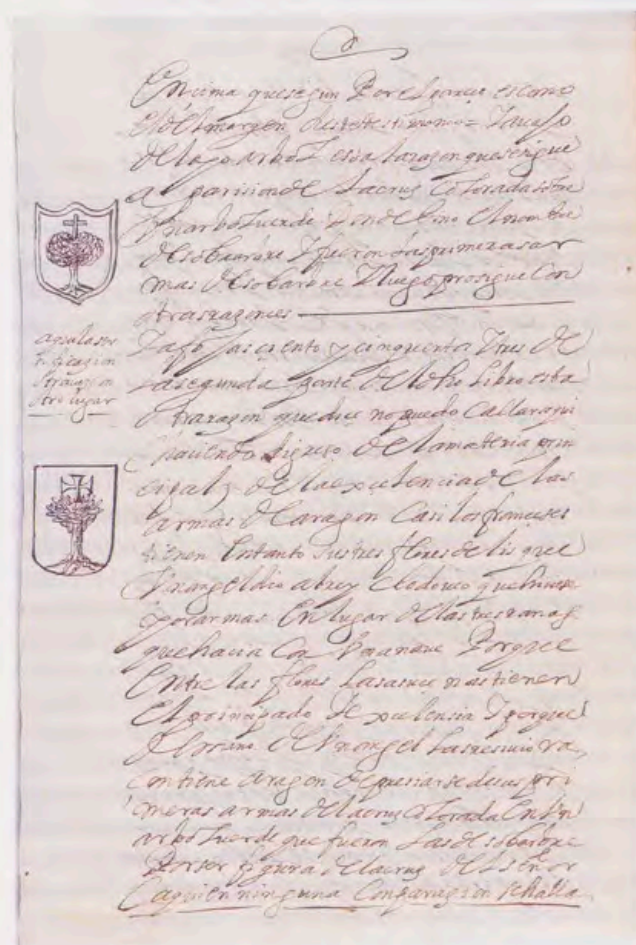 Encima que segun Por el parece es como
el del margen deste testimonio = Y acaso
de la arbol esta la razon que se sigue
aparision de la cruz Colorada sobre
Un arbol verde donde vino el nombre
de sobrarbe Y fueron las primeras ar
mas de sobrarbe Y luego prosigue Con
otras razones
aqui la sig
otro lugar
Y a fojas ciento y cinquenta Y tres de
la segunda parte de el dho Libro esta
otra razon que dice no puedo Callar aqui
haviendo de la materia prin
cipal y de la exelencia de las
armas de aragon Casi los franceses
tienen En tanto sus tres flores de lis que
Un angel dio al rey Clodoveo que truxese
por armas En lugar de las tres ranas
que hacia Porque
Entre las flores Las asucenas tienen
El principado de exelencia Y porque
de mano del angel Las
mas tiene aragon de presiarse de sus pri
meras armas de la cruz Colorada En Un
arbol verde que fueron Las de sobrarbe
Por ser figura de la cruz del señor
Con quien ninguna Comparazion se halla